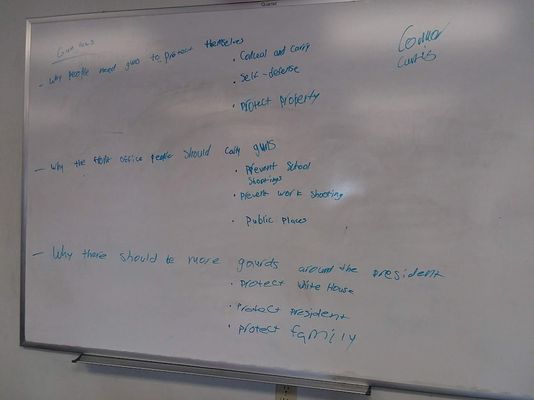 Quartet
Gun laws
Conner
Curtis
- Why people need guns to protect themselves
• Conceal and Carry
• Self-defense
• Protect Property
- Why the front office people should carry guns
• Prevent School
Shootings
• Prevent work shooting
• Public Places
- Why there should be more gaurds around the president
• Protect White House
• Protect president
• Protect family